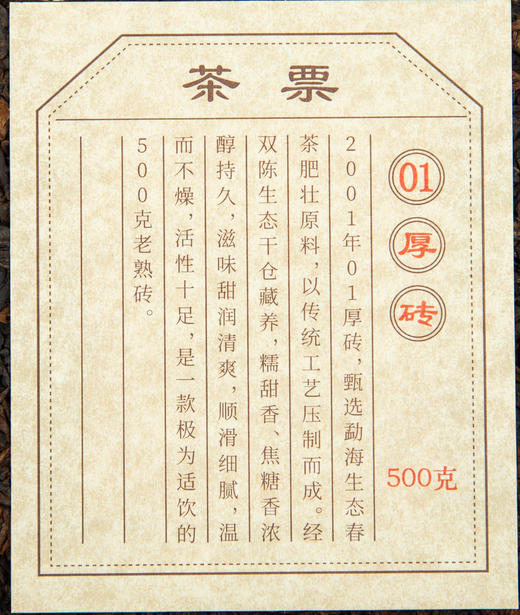 茶票
01
厚
砖
500克
2001年01厚砖，甄选勐海生态春
茶肥壮原料，以传统工艺压制而成。经
双陈生态干仓藏养，糯甜香、焦糖香浓
醇持久，滋味甜润清爽，顺滑细腻，温
而不燥，活性十足，是一款极为适饮的
500克老熟砖。